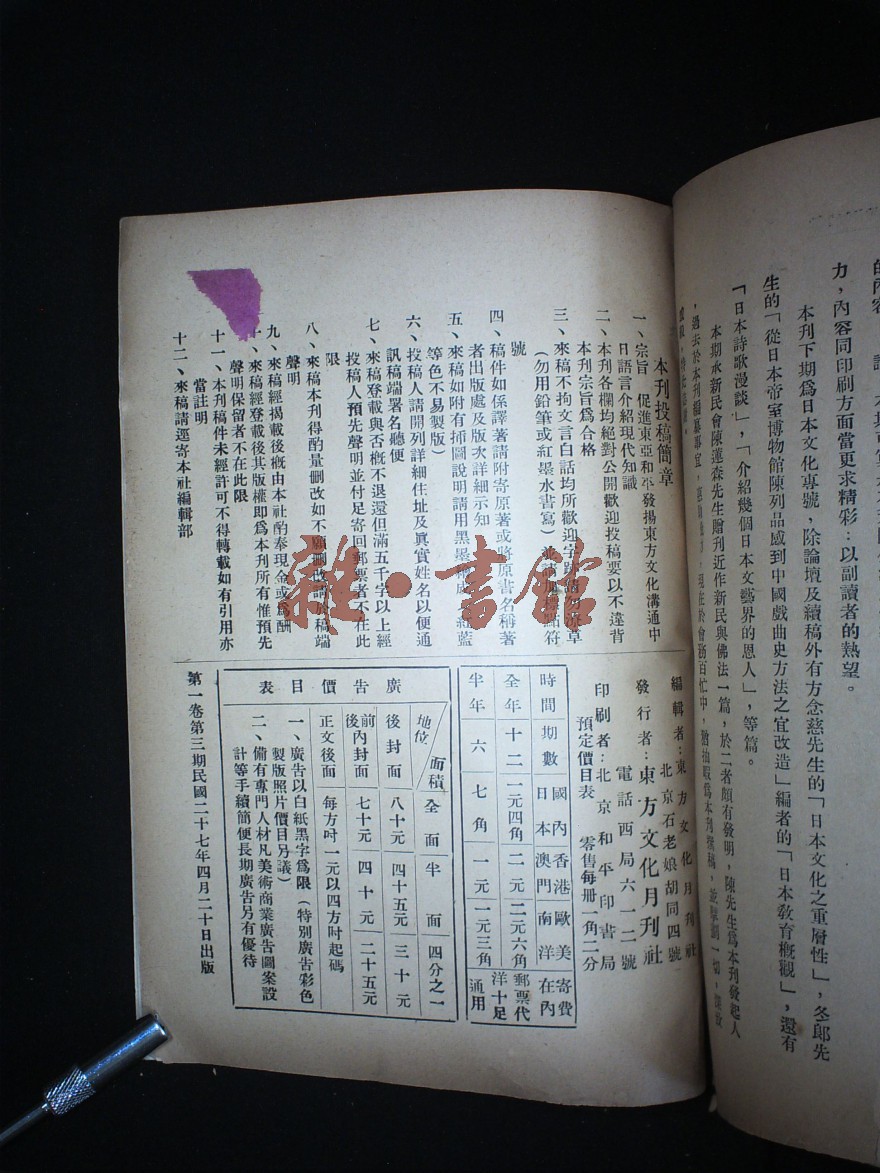 力，內容同印刷方面當更求精彩：以副讀者的熱望。
本刊下期爲日本文化專號，除論壇及續稿外有方念慈先生的「日本文化之重層性」，冬郎先
生的「從日本帝室博物館陳列品感到中國戲曲史方法之宜改造」編者的「日本教育概觀」，還有
「日本詩歌漫談」，「介紹幾個日本文藝界的恩人」，等篇。
本期承新民會陳蓮森先生贈刊近作新民與佛法一篇，於二者頗有發明，陳先生爲本刊發起人
，過去於本刊編纂事宜，現在於會務百忙中，
本刊投稿簡章
一、宗旨 促進東亞和平發揚東方文化溝通中
日語言介紹現代知識
二、本刊各欄均絕對公開歡迎投稿要以不違背
本刊宗旨爲合格
三、來稿不拘文言白話均所歡迎字
（勿用鉛筆或紅墨水書寫）
號
四、稿件如係譯著請附寄原著或將原書名稱著
者出版處及版次詳細示知
五、來稿如附有揷圖說明請用黑墨 紅藍
等色不易製版）
六、投稿人請開列詳細住址及眞實姓名以便通
訊稿端署名聽便
七、來稿登載與否槪不退還但滿五千字以上經
投稿人預先聲明並付足寄回郵票者不在此
限
八、來稿本刊得酌量刪改如不願刪改請 原稿端
聲明
九、來稿經揭載後槪由本社酌奉現金或 酬
十、來稿經登載後其版權即爲本刊所有惟預先
聲明保留者不在此限
十一、本刊稿件未經許可不得轉載如有引用亦
當註明
十二、來稿請逕寄本社編輯部
編輯者：東方文化月刊社
北京石老娘胡同四號
發行者：東方文化月刊社
電話西局六一二號
印刷者：北京和平印書局
預定價目表 零售每冊一角二分
時間 期數 國內日本 香港澳門 歐美南洋 寄費在內
全年 十二 一元四角 二元 二元六角 郵票代洋十足通用
半年 六 七角 一元 一元三角
廣告價目表
地位 面積 全面 半面 四分之一
後封面 八十元 四十五元 三十元
前後內封面 七十元 四十元 二十五元
正文後面 每方吋一元以四方吋起碼
一、廣告以白紙黑字爲限（特別廣告彩色
製版照片價目另議）
二、備有專門人材凡美術商業廣告圖案設
計等手續簡便長期廣告另有優待
第一卷第三期民國二十七年四月二十日出版
雜·書館